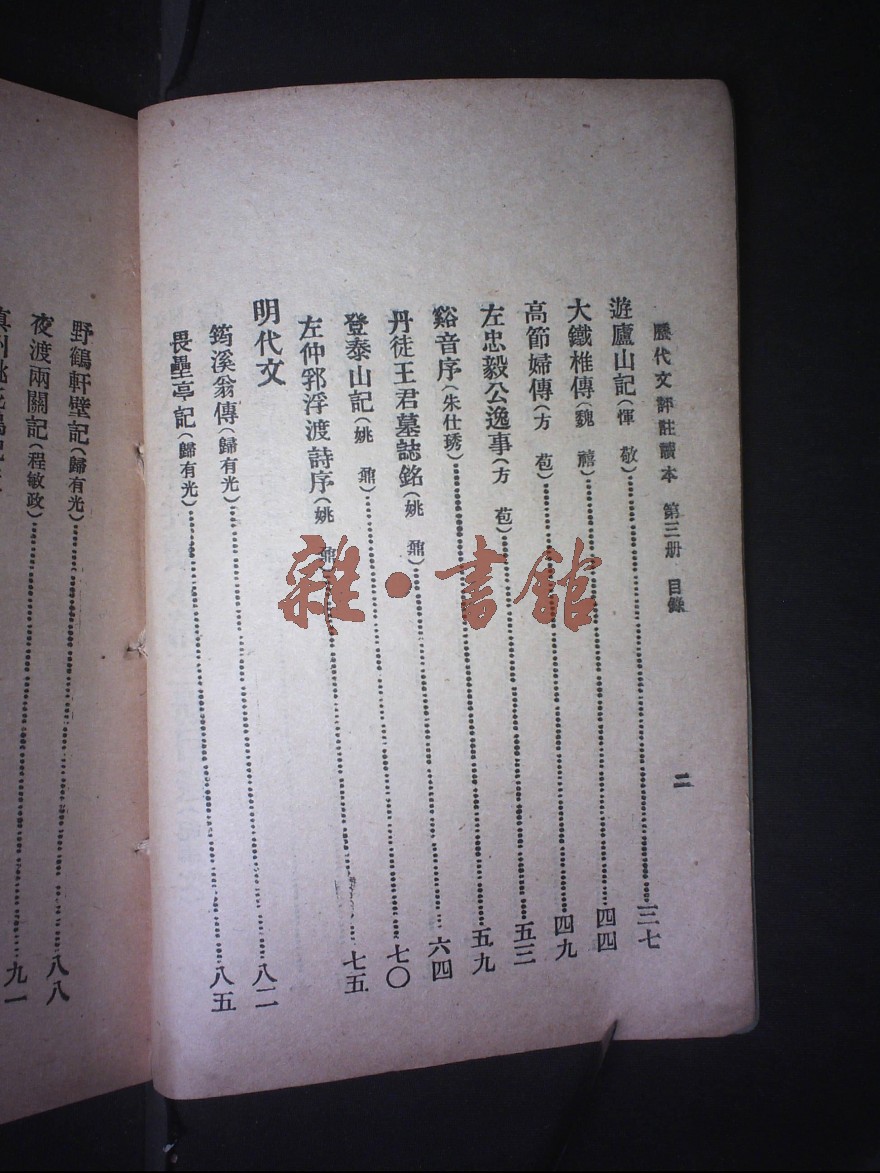 歷代文評註讀本 第三册 目錄 二
遊廬山記(惲敬)三七
大鐵椎傳(魏禧)四四
高節婦傳(方苞)四九
左忠毅公逸事(方苞)五三
谿音序(朱仕琇)五九
丹徒王君墓誌銘(姚鼐)六四
登泰山記(姚鼐)七〇
左仲郛浮渡詩序(姚鼐)七五
明代文
筠溪翁傳(歸有光)八二
畏壘亭記(歸有光)八五
野鶴軒壁記(歸有光)八八
夜渡兩關記(程敏政)九一
雜·書館